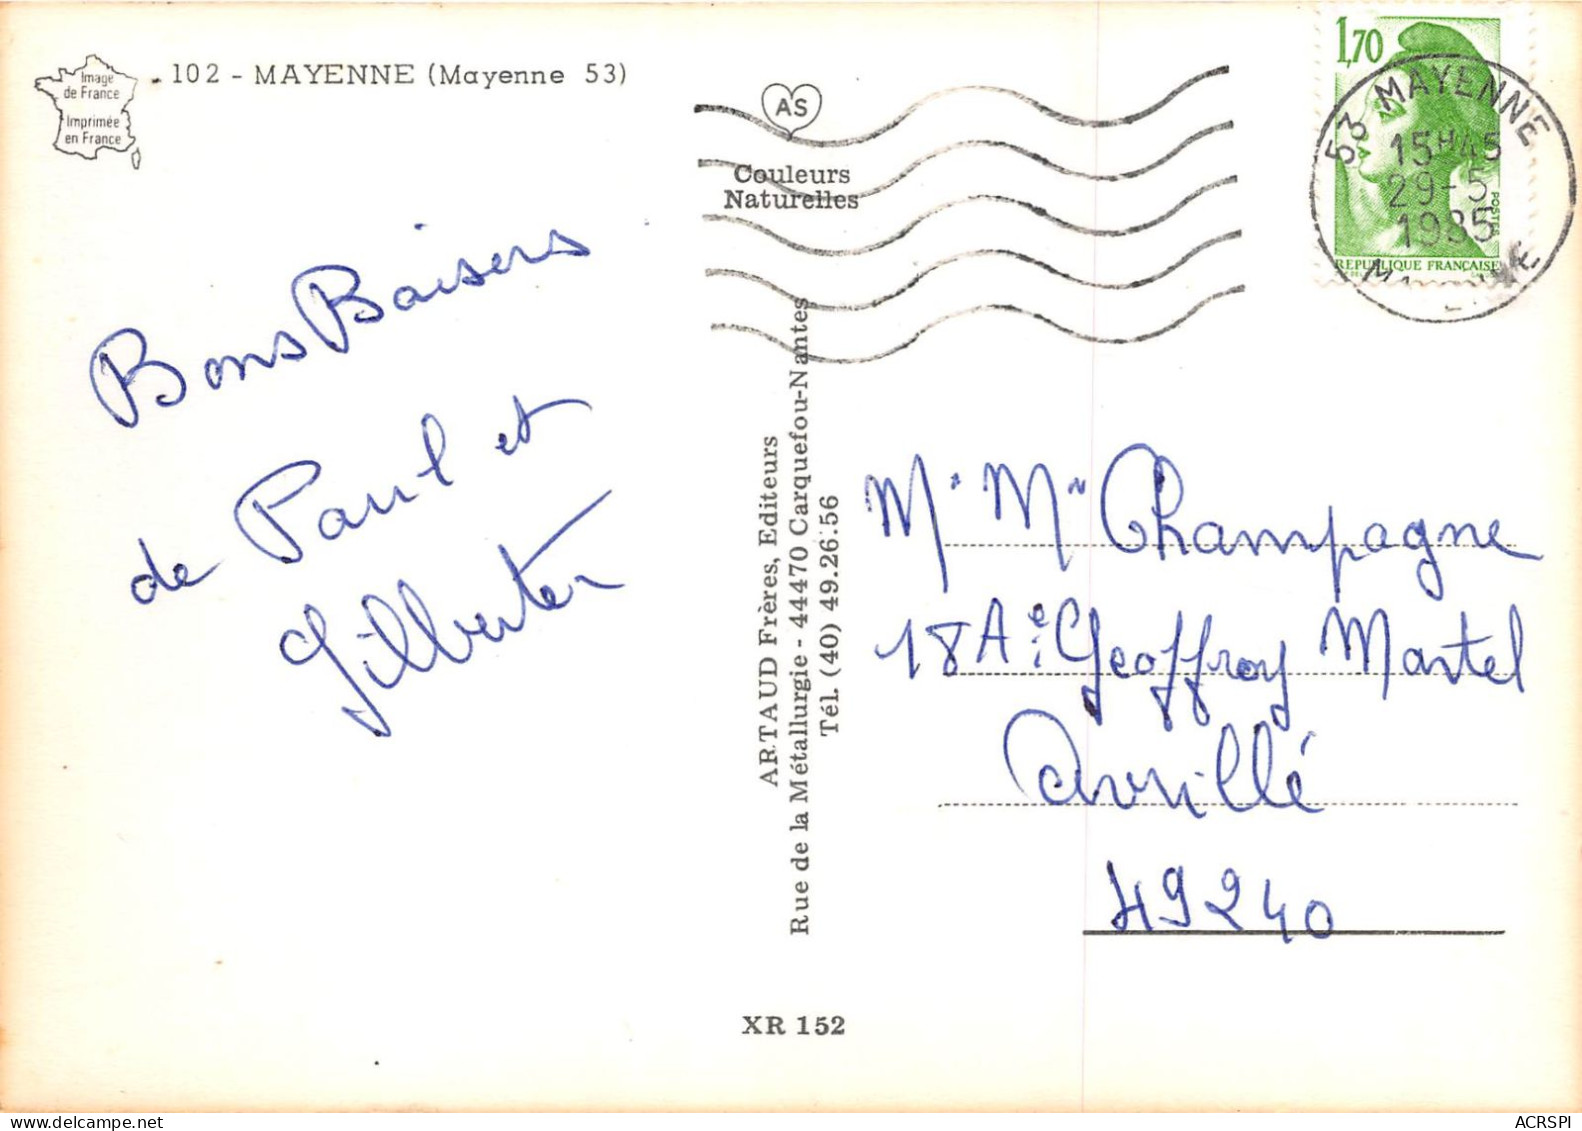 Image
de France
Imprimée
en France
102 - MAYENNE (Mayenne 53)
AS
Couleurs
Naturelles
1,70
POSTES
REPUBLIQUE FRANÇAISE
53 MAYENNE
15H45
29-5
1985
Bons Baisers
de Paul et
Gilberte
ARTAUD Frères, Editeurs
Rue de la Métallurgie - 44470 Carquefou-Nantes
Tél. (40) 49.26.56
Mr Me Champagne
18 Ae Geoffroy Martel
Avrillé
49240
XR 152
ACRSPI